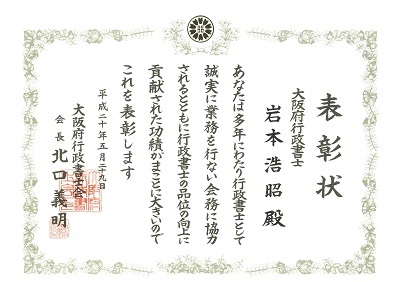 表彰状
大阪府行政書士
岩本浩昭殿
あなたは多年にわたり行政書士として
誠実に業務を行ない会務に協力
されるとともに行政書士の品位の向上に
貢献された功績がまことに大きいので
これを表彰します
平成二十年五月二十九日
大阪府行政書士会
会長 北口義明